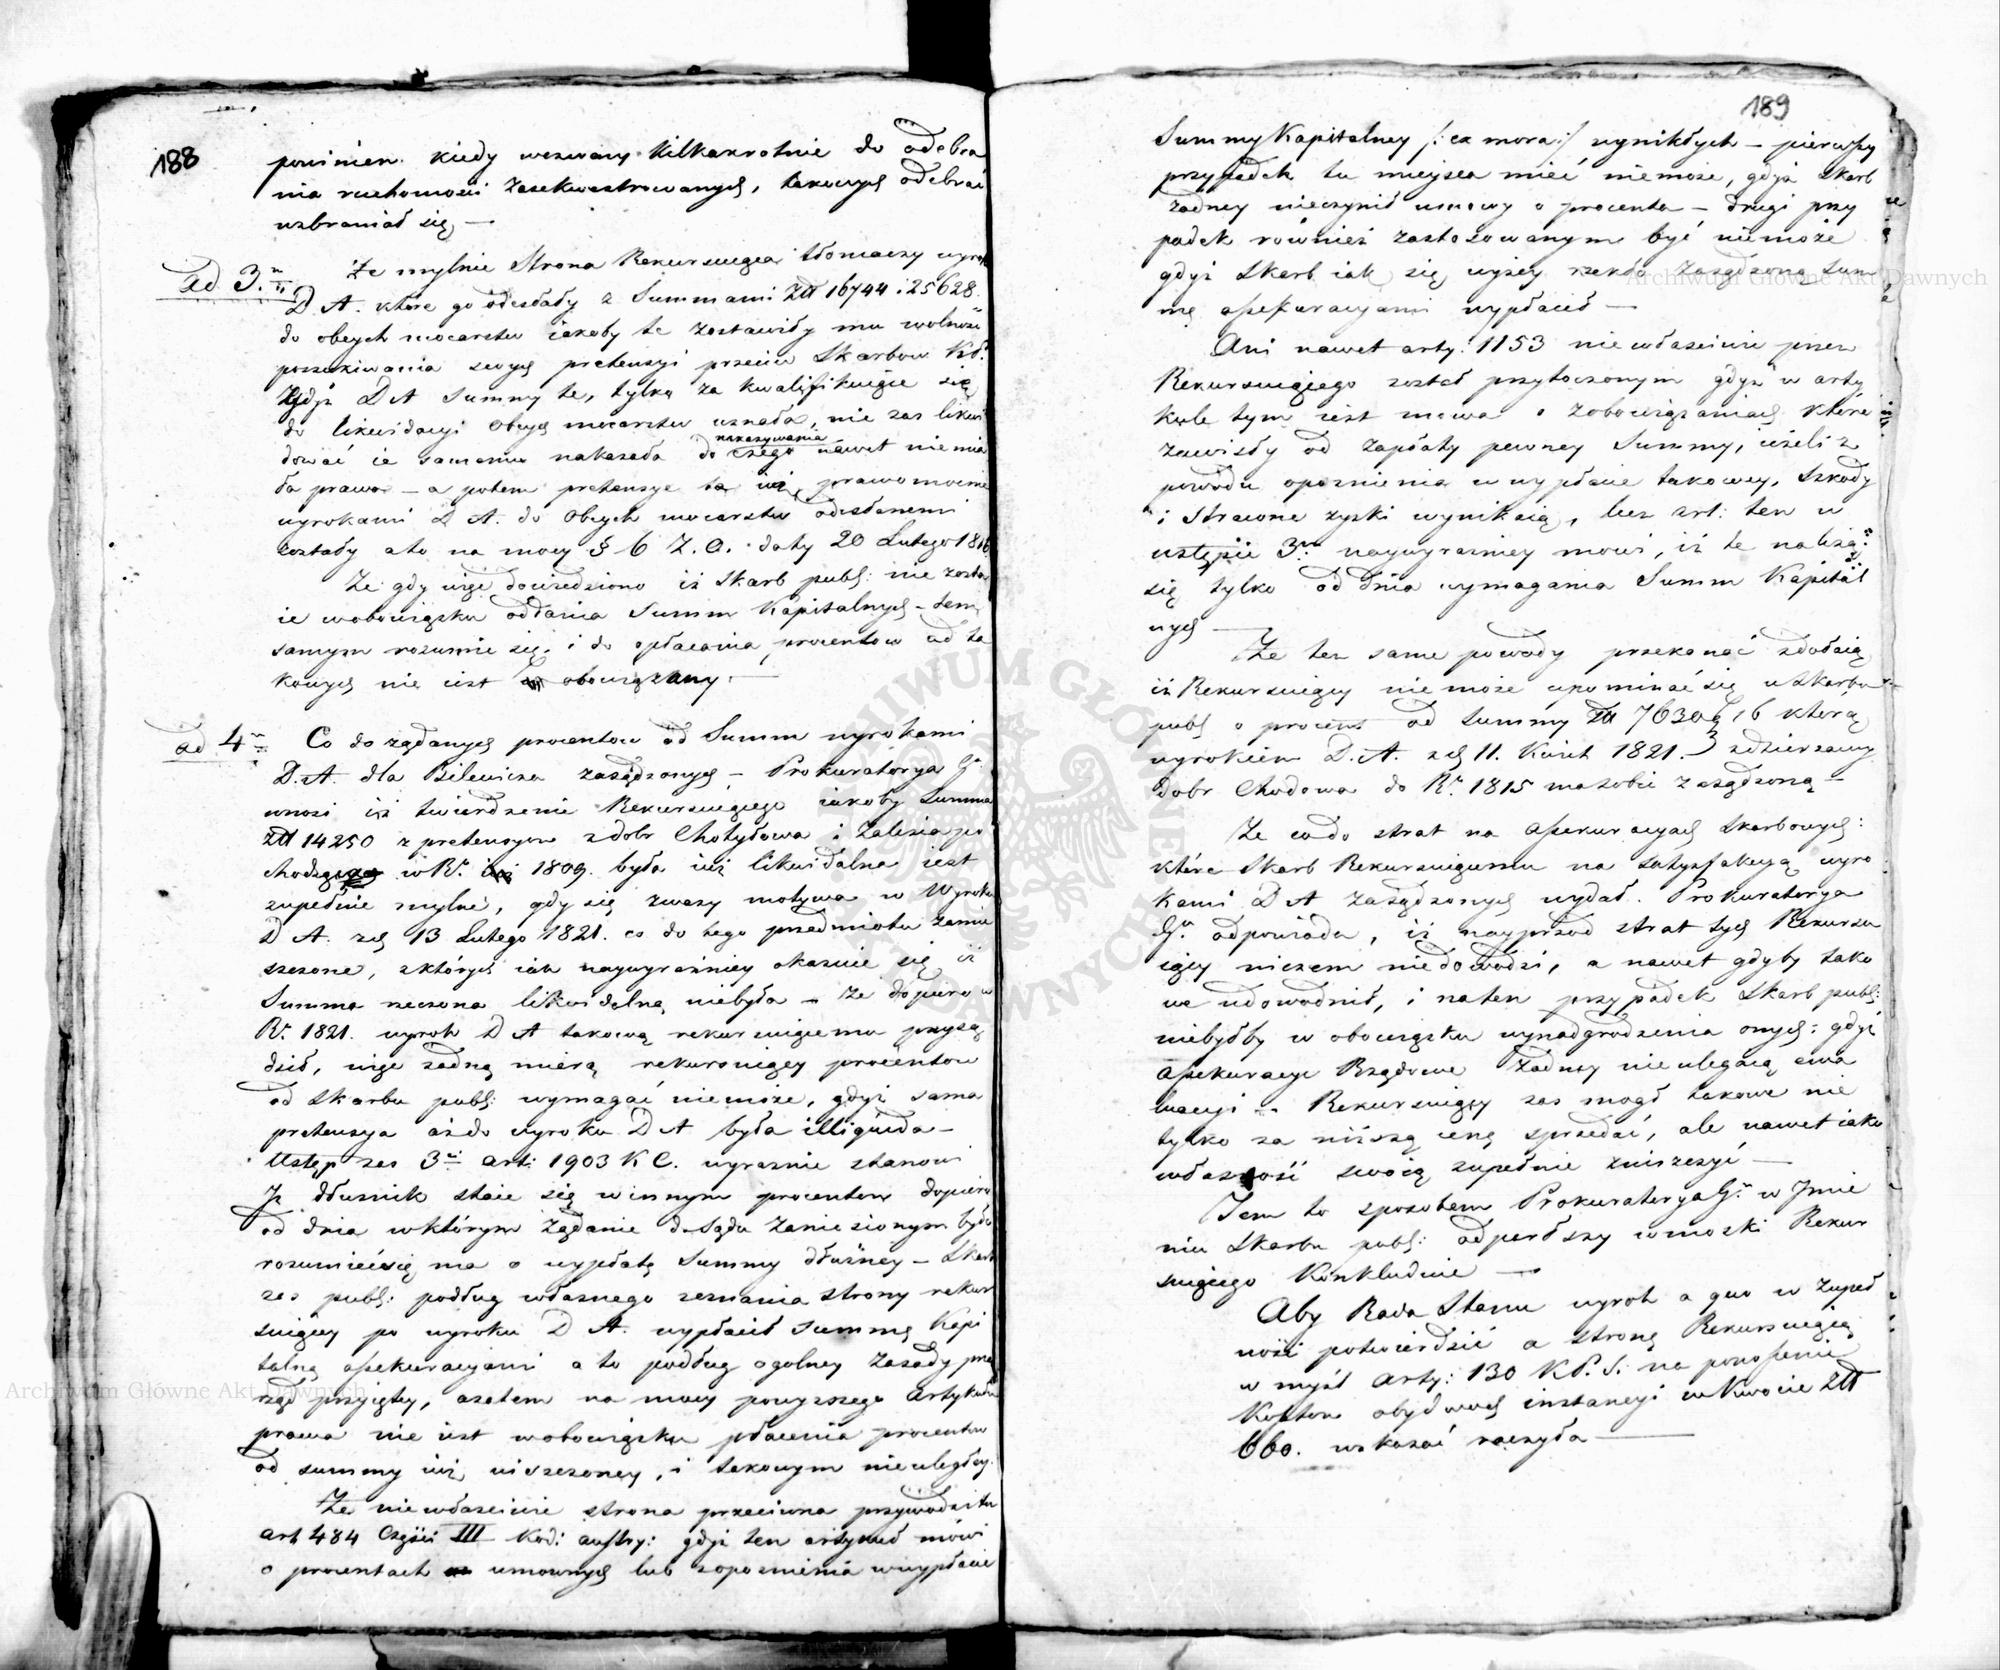 188
powinien. kiedy wezwany kilkakrotnie do odebra
nia ruchomości zasekwestrowanych, takowych odebrać
wzbraniał się —
ad 3.m
Że mylnie Strona Rekursuiąca tłomaczy wyrok
D A. które go odesłały z Summami Złł 16744 i 25628.
do obcych mocarstw iakoby te zostawiły mu wolność
poszukiwania swych pretensyi przeciw Skarbow
gdyż D A Summy te, tylko za kwalifikuiące się
do likwidacyi Obcych mocarstw uznała, nie zas likwi
dować ie samemu nakazała do czego nakazywania nawet niemia
ła prawa — a potem pretensye te iuż prawomocne
wyrokami D A. do Obcych mocarstw odesłanemi
zostały a to na mocy § 6 Z.O. daty 20 Lutego 1816
Że gdy więc dowiedziono iż Skarb publ: nie zosta
ie w obowiązku oddania Summ Kapitalnych — tem
samym rozumie się i do opłacania procentow od ta
kowych nie iest obowiązany. —
ad 4m
Co do żądanych procentow od Summ wyrokami
D. A. dla Bilewicza zasądzonych — Prokuratorya Gn
wnosi iż twierdzenie Rekursuiącego iakoby Summa
złł 14250 z pretensyow z dobr Chotyłowa i Zalesia po
chodząca w R. 1809. była iuż likwidalna iest
zupełnie mylne, gdy się zważy motywa w Wyroku
D A. z d 13 Lutego 1821. co do tego przedmiotu zamie
szczone, z których iak naywyraźniey okazuie się iż
Summa rzeczona likwidalną niebyła — że dopiero w
Rr. 1821. wyrok D A takową rekursuiącemu przysą
dził, więc żadną miarą rekursuiący procentow
od Skarbu publ: wymagać niemoże, gdyż sama
pretensya aż do wyroku D A była illiquida —
Ustęp zas 3ci art: 1903 K C. wyraznie stanowi
Iż dłużnik staie się winnym procentow dopiero
od dnia w którym żądanie do Sądu zaniesionym było
rozumieć się ma o wypłatę Summy dłużney — Skarb
zas publ: podług własnego zeznania strony rekur
suiącey po wyroku D A. wypłacił Summę Kapi
talną assekuracyami a to podług ogolney zasady prze
rząd przyiętey, a zatem na mocy powyższego Artykułu
prawa nie iest w obowiązku płacenia procentow
od summy iuż uiszczoney, i takowym nieuległey.
Że niewłaściwie strona przeciwna przywodzi tu
art 484 Części III Kod: austry: gdyż ten artykuł mówi
o procentach umownych lub z opoznienia w wypłacie
189
Summy Kapitalney /: ex mora :/ wynikłych — pierwszy
przypadek tu mieysca mieć niemoże, gdyż Skarb
żadney nieczynił umowy o procenta — drugi przy
padek również zastosowanym być niemoże
gdyż Skarb iak się wyżey rzekło zasądzoną Sum
mę assekuracyami wypłacił —
Ani nawet arty: 1153 niewłaściwie przez
Rekursuiącego został przytoczonym gdyż w arty
kule tym iest mowa o zobowiązaniach które
zawisły od zapłaty pewney Summy, ieżeli z
powodu opoznienia w wypłacie takowey, Szkody
i stracone zyski wynikaią, lecz art: ten w
ustępie 3m naywyraźniey mowi, iż te należą
się tylko od dnia wymagania Summ Kapital
nych —
Że tez same powody przekonać zdołaią
iż Rekursuiący niemoże upominać się u Skarbu
publ o procent od Summy Złł 7630 g 16 którą
wyrokiem D. A. z d 11. Kwiet 1821. z dzierżawy
dobr Chodowa do Rr. 1815 ma sobie zasądzoną —
Że co do strat na assekuracyach Skarbowych:
które Skarb Rekursuiącemu na satysfakcyą wyro
kami D A zasądzonych wydał. Prokuratorya
Gn odpowiada, iż nayprzód strat tych Rekursu
iący niczem niedowodzi, a nawet gdyby tako
we udowodnił, i na ten przypadek Skarb publ:
niebyłby w obowiązku wynadgrodzenia onych: gdyż
assekuracye Rządowe żadney nieulegaią ewa
luacyi — Rekursuiący zas mogł takowe nie
tylko za niższą cenę sprzedać, ale nawet iako
własność swoią zupełnie zniszczyć —
Tem to sposobem Prokuratorya Gn w Imie
niu Skarbu publ: odparłszy wnioski Rekur
suiącego Konkluduie —
Aby Rada Stanu wyrok a quo w zupeł
ności potwierdzić a stronę Rekursuiącą
w myśl Arty: 130 K P. S. na ponoszenie
Kosztow obydwuch instancyi w Kwocie Złł
660. wskazać raczyła —
Archiwum Główne Akt Dawnych
Archiwum Główne Akt Dawnych
ARCHIWUM GŁÓWNE AKT DAWNYCH